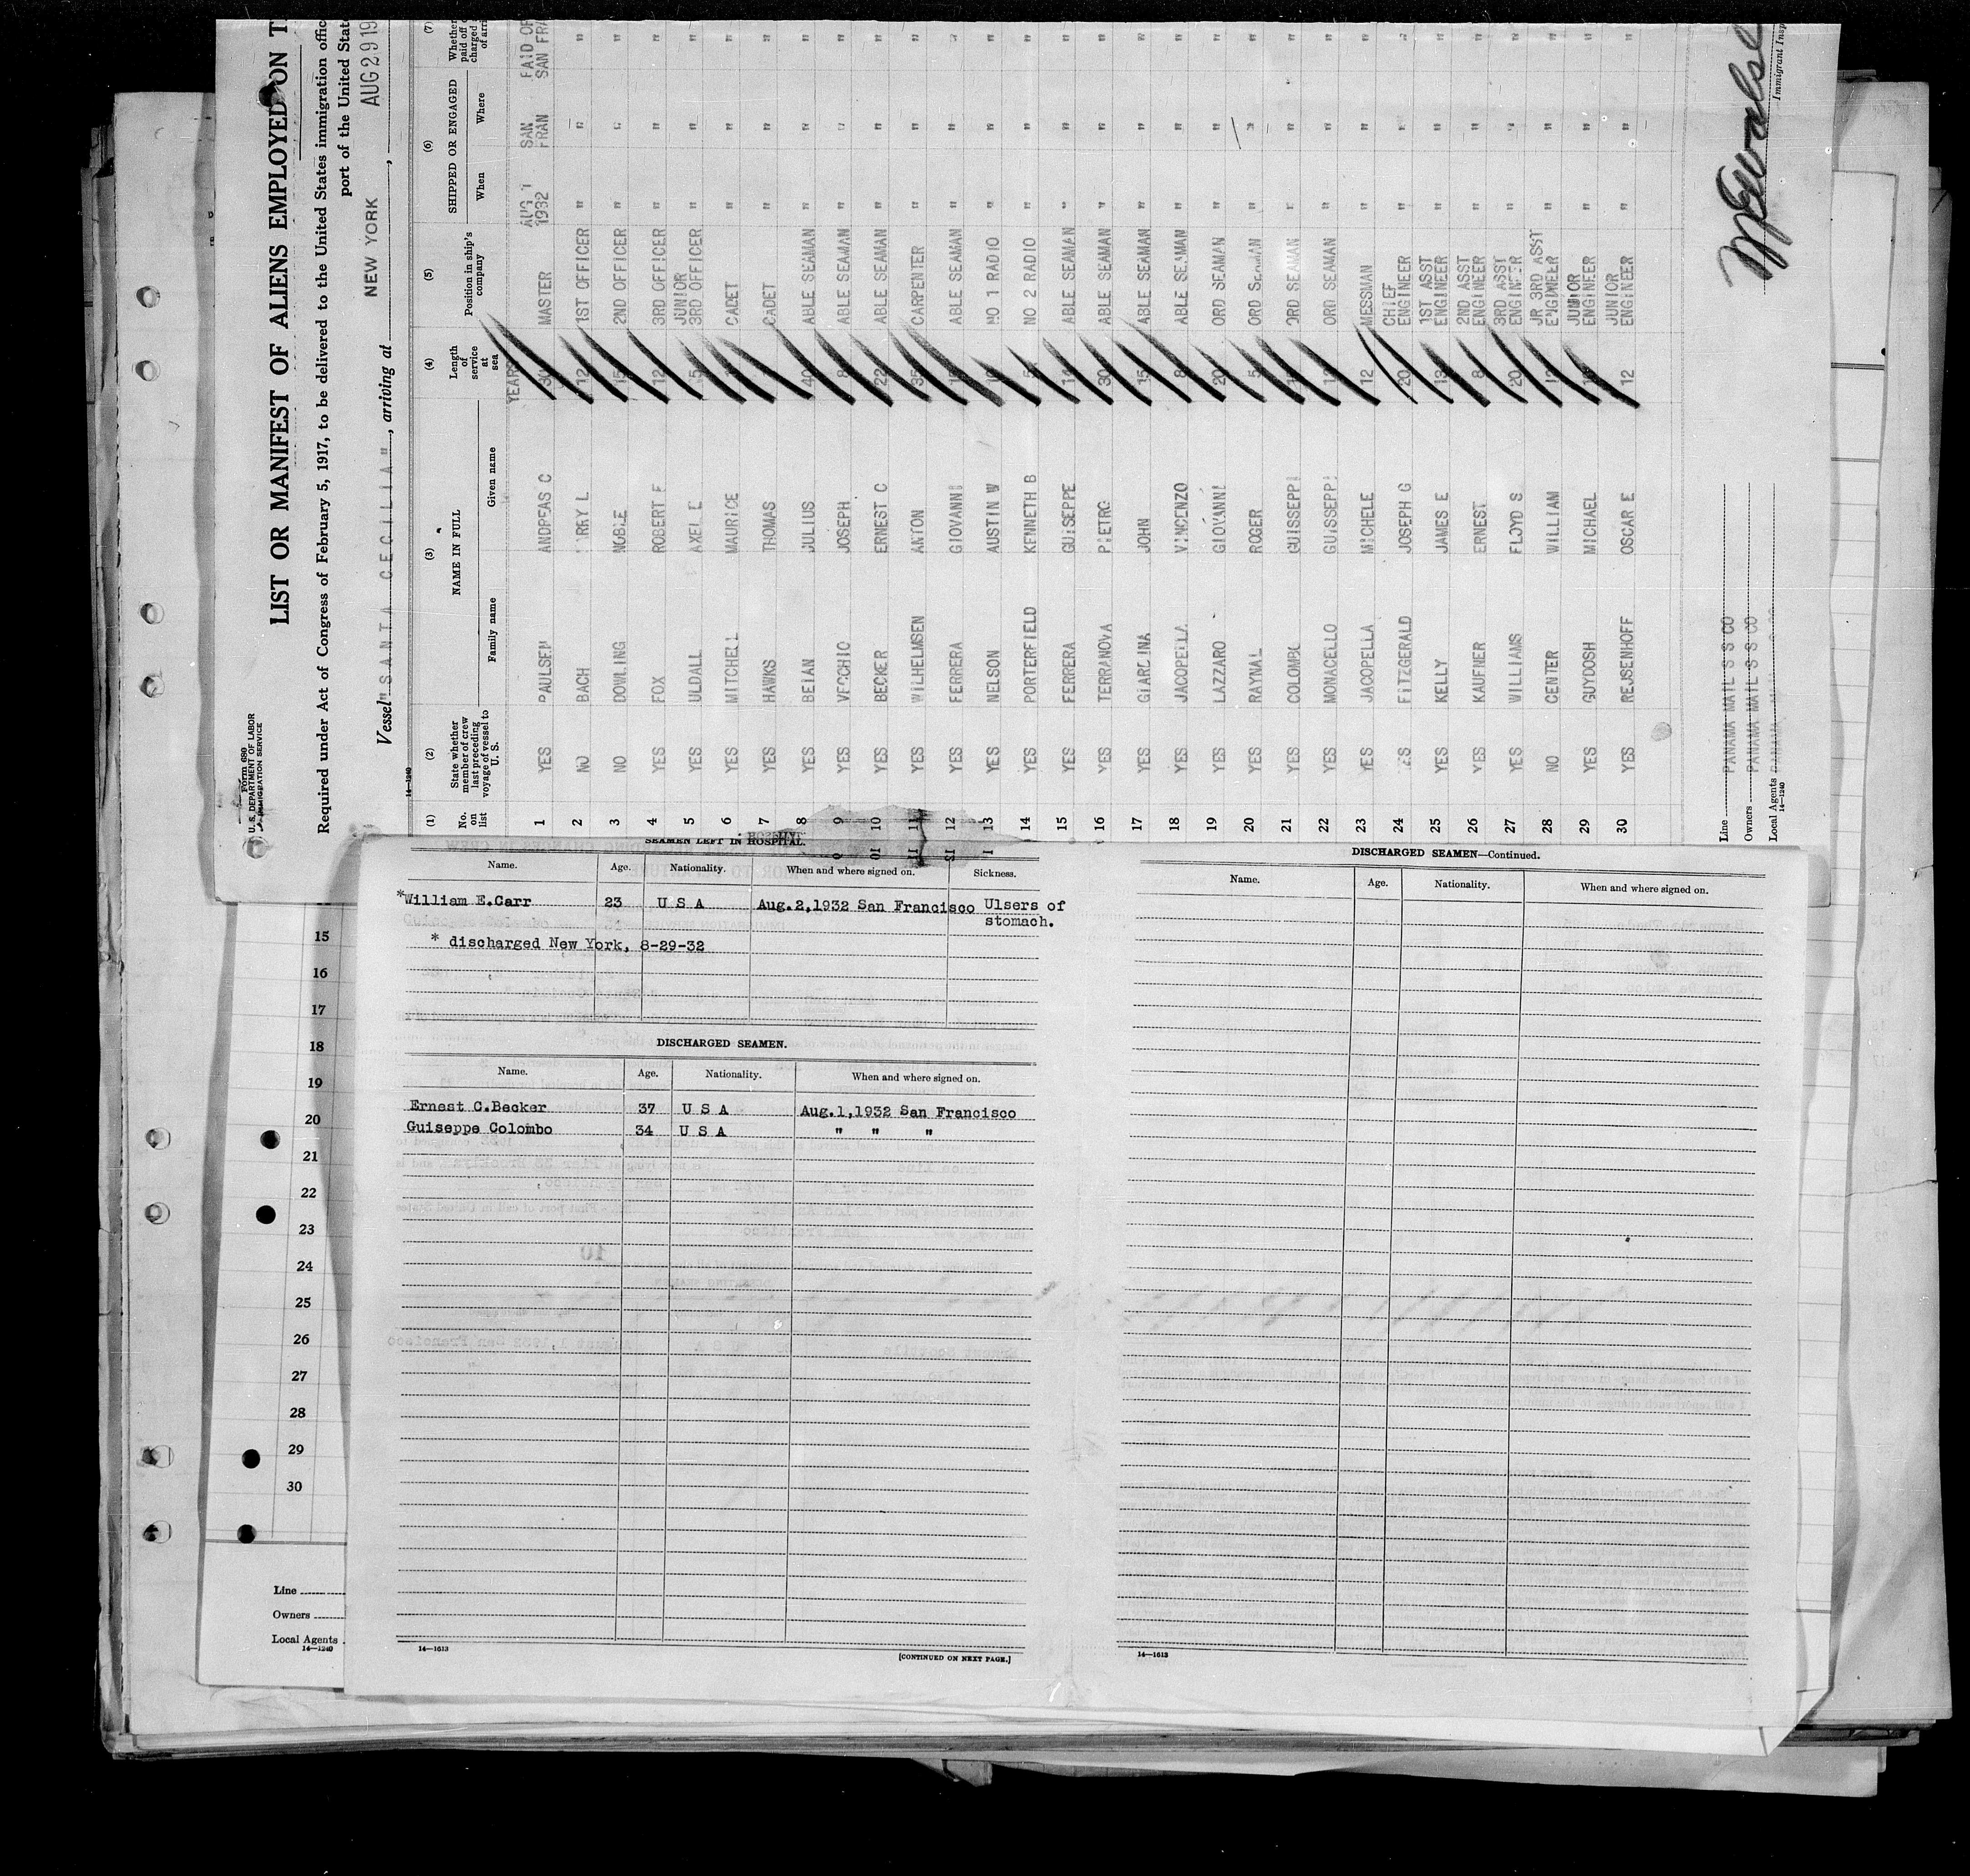 Form 680
U. S. DEPARTMENT OF LABOR
IMMIGRATION SERVICE
LIST OR MANIFEST OF ALIENS EMPLOYED ON T
Required under Act of Congress of February 5, 1917, to be delivered to the United States immigration offic
port of the United Stat
Vessel "SANTA CECILIA", arriving at NEW YORK, AUG 29 19
14—1240
(1) (2) (3) (4) (5) (6) (7)
No. on list
State whether member of crew last preceding voyage of vessel to U. S.
NAME IN FULL
Family name Given name
Length of service at sea
Position in ship's company
SHIPPED OR ENGAGED
When Where
Whether paid off charged of arri
YEARS
1 YES PAULSEN ANDREAS C 30 MASTER AUG 1 1932 SAN FRAN PAID OF SAN FRA
2 NO BACH L 12 1ST OFFICER " " "
3 NO DOWLING NOBLE 15 2ND OFFICER " " "
4 YES FOX ROBERT F 12 3RD OFFICER " " "
5 YES ULDALL AXEL E JUNIOR 3RD OFFICER " " "
6 YES MITCHELL MAURICE CADET " " "
7 YES HAWKS THOMAS CADET " " "
8 YES BEIAN JULIUS 40 ABLE SEAMAN " " "
9 YES VECCHIO JOSEPH 8 ABLE SEAMAN " " "
10 YES BECKER ERNEST C 22 ABLE SEAMAN " " "
11 YES WILHELMSEN ANTON 35 CARPENTER " " "
12 YES FERRERA GIOVANNI ABLE SEAMAN " " "
13 YES NELSON AUSTIN W 10 NO 1 RADIO " " "
14 YES PORTERFIELD KENNETH B 5 NO 2 RADIO " " "
15 YES FERRERA GUISEPPE 14 ABLE SEAMAN " " "
16 YES TERRANOVA PIETRO 30 ABLE SEAMAN " " "
17 YES GIARDINA JOHN 15 ABLE SEAMAN " " "
18 YES JACOPELLA VINCENZO 8 ABLE SEAMAN " " "
19 YES LAZZARO GIOVANNI 20 ORD SEAMAN " " "
20 YES RAYNAL ROGER 5 ORD SEAMAN " " "
21 YES COLOMBO GUISSEPPI ORD SEAMAN " " "
22 YES MONACELLO GUISSEPPI 12 ORD SEAMAN " " "
23 YES JACOPELLA MICHELE 12 MESSMAN " " "
24 YES FITZGERALD JOSEPH G 20 CHIEF ENGINEER " " "
25 YES KELLY JAMES E 13 1ST ASST ENGINEER " " "
26 YES KAUFNER ERNEST 8 2ND ASST ENGINEER " " "
27 YES WILLIAMS FLOYD S 20 3RD ASST ENGINEER " " "
28 NO CENTER WILLIAM 12 JR 3RD ASST ENGINEER " " "
29 YES GUYDOSH MICHAEL JUNIOR ENGINEER " " "
30 YES REJSENHOFF OSCAR E 12 JUNIOR ENGINEER " " "
Line PANAMA MAIL S S CO
Owners PANAMA MAIL S S CO
Local Agents PANAMA
14—1240
Immigrant Insp
SEAMEN LEFT IN HOSPITAL.
Name. Age. Nationality. When and where signed on. Sickness.
*William E.Carr 23 U S A Aug.2,1932 San Francisco Ulsers of
stomach.
* discharged New York, 8-29-32
DISCHARGED SEAMEN.
Name. Age. Nationality. When and where signed on.
Ernest C.Becker 37 U S A Aug.1,1932 San Francisco
Guiseppe Colombo 34 U S A " " "
14—1613
[CONTINUED ON NEXT PAGE.]
DISCHARGED SEAMEN—Continued.
Name. Age. Nationality. When and where signed on.
14—1613
15
16
17
18
19
20
21
22
23
24
25
26
27
28
29
30
Line
Owners
Local Agents
14—1240